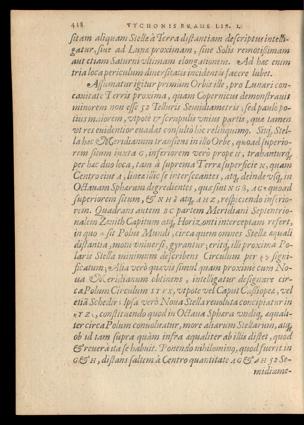 428 TYCHONIS BRAHE LIB. I.
sitam aliquam Stellæ à Terra distantiam descriptus intelli-
gatur, siue ad Lunæ proximam, siue Solis remotissimam
aut etiam Saturni vltimam elongationem. Ad hæc enim
tria loca periculum diuersitatis incidentis facere lubet.
Assumatur igitur primùm Orbis ille, pro Lunari con-
cauitate Terræ proxima, quam Copernicus demonstrauit
minorem non esse 52 Telluris Semidiametris, sed paulò po-
tius maiorem, vtpote 17 scrupulis vnius partis, quæ tamen
vt res euidentior euadat consultò hîc relinquimus. Sitq; Stel-
la hæc Meridianum transiens in illo Orbe, quoad superio-
rem situm iuxta G, inferiorem verò propè H, trahanturq;
per hæc duo loca, tam à suprema Terræ superficie N, quàm
Centro eius A, lineæ illîc se intersecantes, atq; deinde vsq; in
Octauam Sphæram digredientes, quæ sint N G B, A G
superiorem situm, & N H atq; A H Z, respiciendo inferio-
rem. Quadrans autem BC partem Meridiani Septentrio-
nalem Zenith Capitum atq; Horizonti interceptam refert,
in quo sit Polus Mundi, circa quem omnes Stellæ æquali
distantia, motu vniuersi, gyrantur; eritq; illi proxima Po-
laris Stella minimum describens Circulum per signi-
ficatum; Alia verò quæuis simul quàm proximè cum No-
ua Meridianum obtinens, intelligatur designare cir-
ca Polum Circulum vtpote vel Caput Cassiopeæ, vel
etiā Schedir: Ipsa verò Noua Stella reuoluta concipiatur in
constituendo quod in Octaua Sphæra vndiq; æquali-
ter circa Polum conuoluatur, more aliarum Stellarum, atq;
ob id tam supra quàm infra æqualiter ab illis distet, quod
& reuera ita se habuit. Ponendo nihilominus, quod fuerit in
G & H, distans saltem à Centro quantitate AG & AH 52 Se-
midiame-